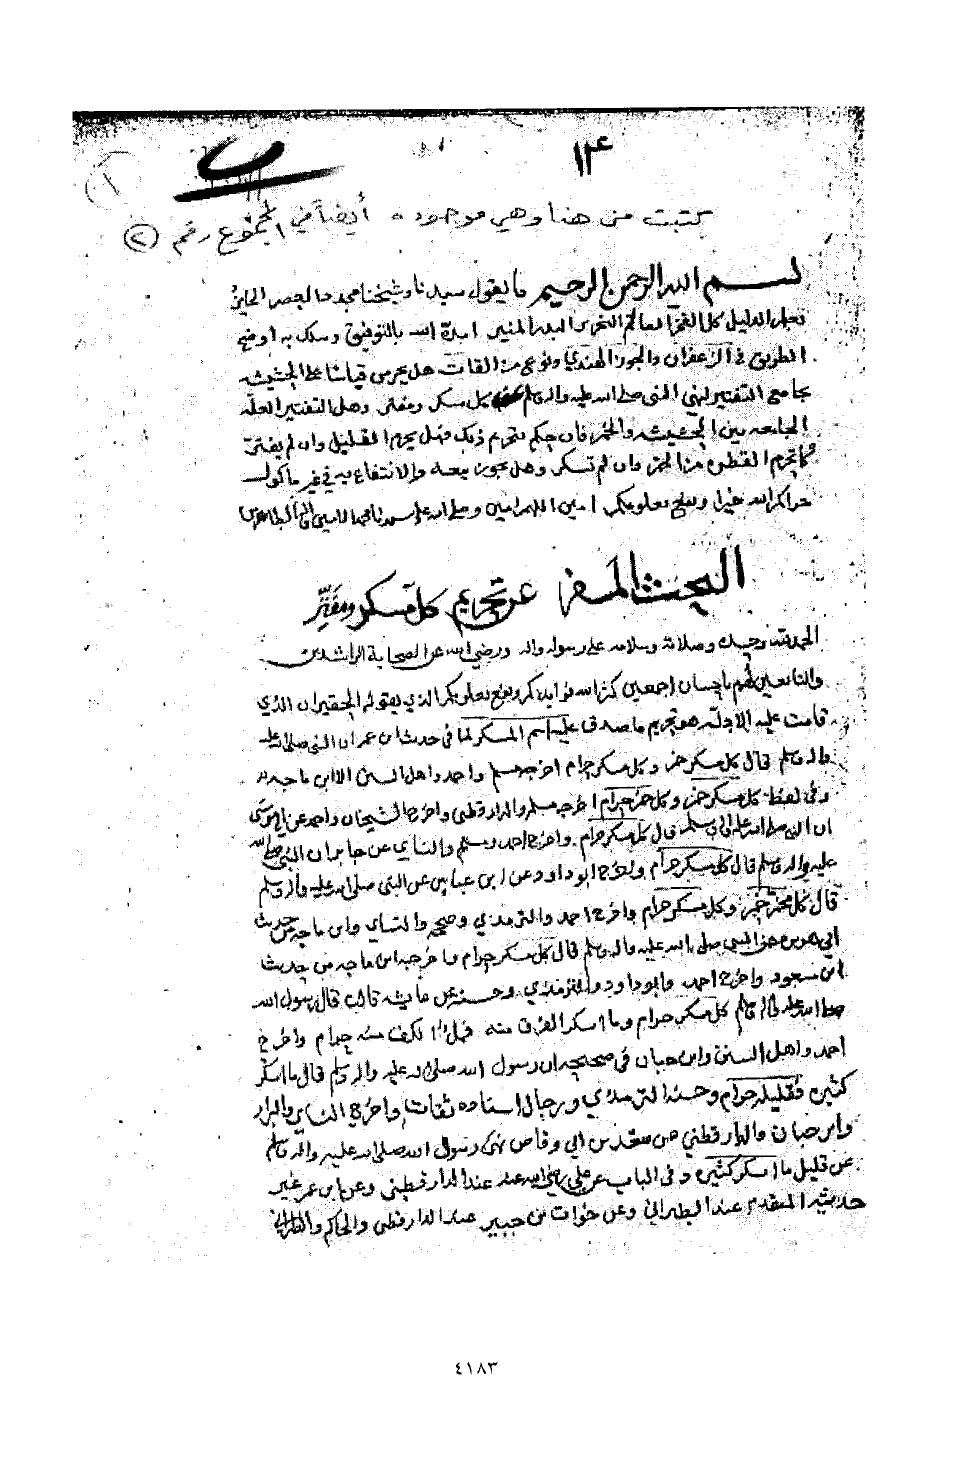 ١٣٤
كتبت من هنا وهي موجوده أيضاً في المجموع رقم (٢)
بسم الله الرحمن الرحيم ما يقول سيدنا وشيخنا مجدد العصر
الدليل كل الفخر العالم النحرير البدر المنير امده الله بالتوفيق وسلك به اوضح
الطريق في الزعفران والجوز الهندي ونوع من القات هل يحرمن قياسا على الحشيشه
بجامع التفتير لنهي النبي صلى الله عليه واله وسلم عن كل مسكر ومفتر وهل التفتير العله
الجامعه بين الحشيشه والخمر فان حكم بتحريم ذلك فهل يحرم القليل وان لم يفتر
كما تحرم القطره من الخمر وان لم تسكر وهل يجوز بيعه والانتفاع به في غير ماكول
جزاكم الله خيرا ونفع بعلومكم امين اللهم امين وصلى الله على سيدنا محمد الامين واله الطاهرين
البحث المسفر عن تحريم كل مسكر ومفتر
الحمد لله وحده وصلاته وسلامه على رسوله واله ورضي الله عن الصحابة الراشدين
والتابعين لهم باحسان اجمعين كثر الله فوايدكم ونفع بعلومكم الذي يقوله الحقير ان الذي
قامت عليه الادلة هو تحريم ما صدق عليه اسم المسكر لما في حديث ابن عمر ان النبي صلى الله عليه
واله وسلم قال كل مسكر خمر وكل مسكر حرام اخرجه مسلم واحمد واهل السنن الا ابن ماجه
وفي لفظ كل مسكر خمر وكل خمر حرام اخرجه مسلم والدارقطني واخرج الشيخان واحمد عن ابي موسى
ان النبي صلى الله عليه واله وسلم قال كل مسكر حرام واخرج احمد ومسلم والنسأي عن جابر ان النبي صلى الله
عليه واله وسلم قال كل مسكر حرام واخرج ابو داود عن ابن عباس عن النبي صلى الله عليه واله وسلم
قال كل مخمر خمر وكل مسكر حرام واخرج احمد والترمذي وصححه والنسأي وابن ماجه من حديث
ابي هريره عن النبي صلى الله عليه واله وسلم قال كل مسكر حرام واخرجه ابن ماجه من حديث
ابن مسعود واخرج احمد وابو داود والترمذي وحسنه عن عايشه قالت قال رسول الله
صلى الله عليه واله وسلم كل مسكر حرام وما اسكر الفرق منه فملء الكف منه حرام واخرج
احمد واهل السنن وابن حبان في صحيحه ان رسول الله صلى الله عليه واله وسلم قال ما اسكر
كثيره فقليله حرام وحسنه الترمذي ورجال اسناده ثقات واخرج النسأي والبزار
وابن حبان والدارقطني عن سعد بن ابي وقاص نهى رسول الله صلى الله عليه واله وسلم
عن قليل ما اسكر كثيره وفي الباب عن علي رضي الله عنه عند الدارقطني وعن ابن عمر غير
حديثه المتقدم عند الطبراني وعن خوات بن جبير عند الدارقطني والحاكم والطبراني
٤١٨٣